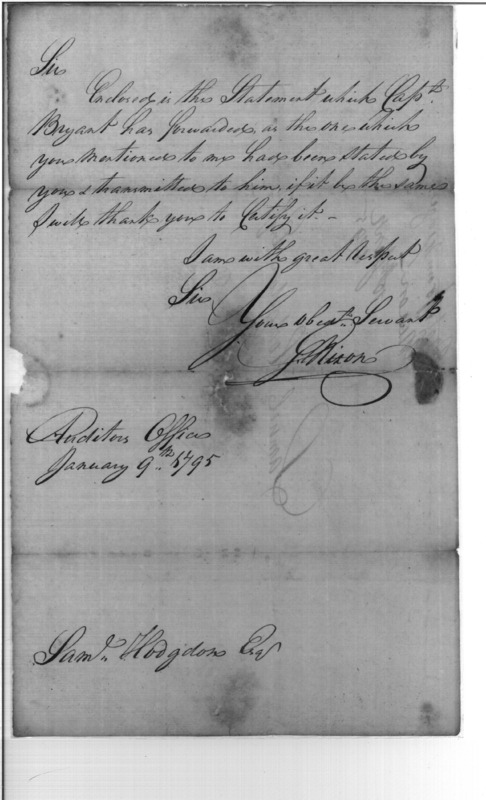 Sir
Enclosed is the Statement which Capt.
Bryant has forwarded, as the one which
you mentioned to me had been stated by
you & transmitted to him, if it be the same
I will thank you to Certify it. –
I am with great respect
Sir
Your Obedt. Servant
J. Nixon
Auditors Office
January 9th. 1795
Saml. Hodgdon Esqr